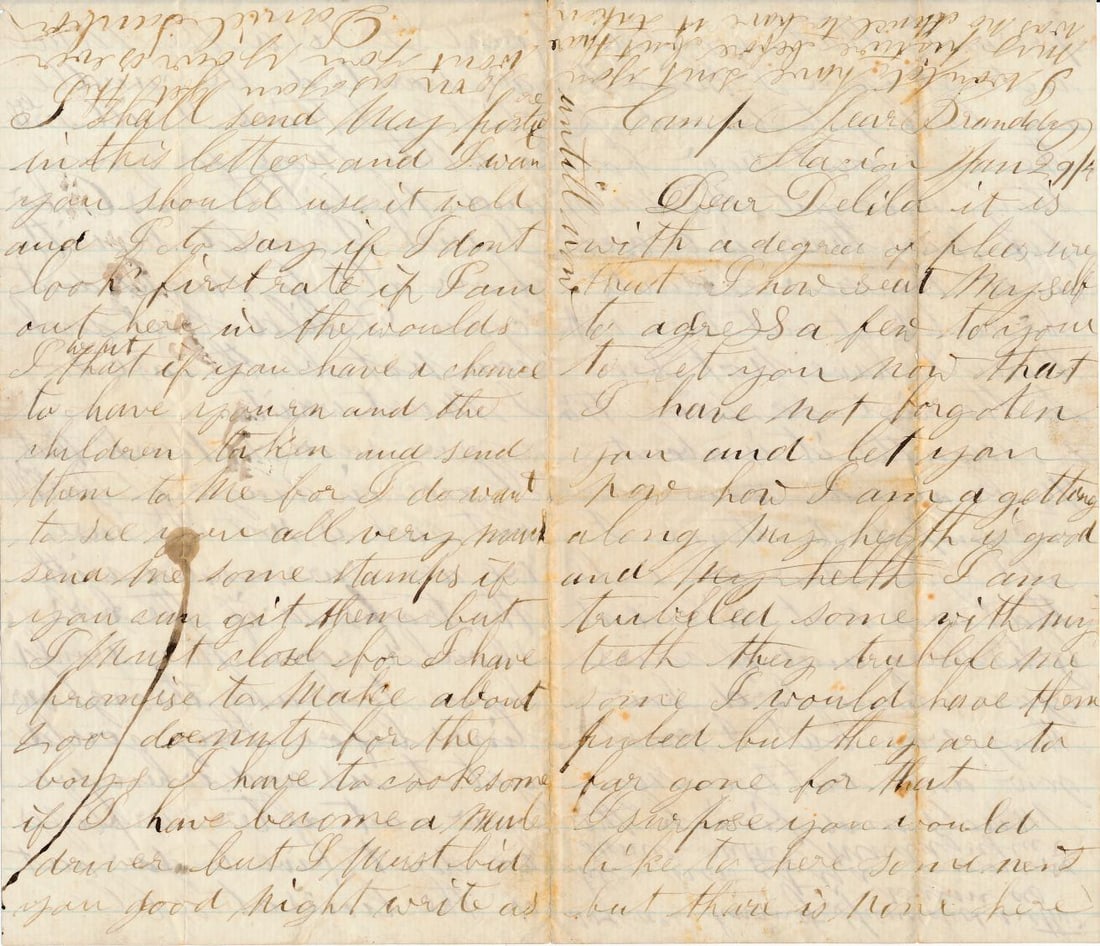 Camp Near Branddy
Stacion Jan 29/4
Dear Delila it is
with a degree of plesure
that I now seat myself
to adress a few to you
to let you now that
I have not forgoten
you and let you
now how I am a getting
along my helth is good
and my helth I am
trubbled some with my
teeth they trubble me
some I would have them
puled but they are to
far gone for that
I surpose you would
like to here some news
but thare is none here
I shall send my
in this letter and I want
you should use it well
and I to say if I dont
look first rate if I am
out here in the woulds
I want that if you have a chance
to have yourn and the
children taken and send
them to me for I do want
to see you all very much
send me some stamps if
you can git them but
I must close for I have
promise to make about
200 doenuts for the
boys I have to cook some
if I have become a mule
driver but I must bid
you good night write as
soon as you get this
wont you yours ever
Daniel
I would have sent you
my picture before but thare
was no chance to have it taken
untill now